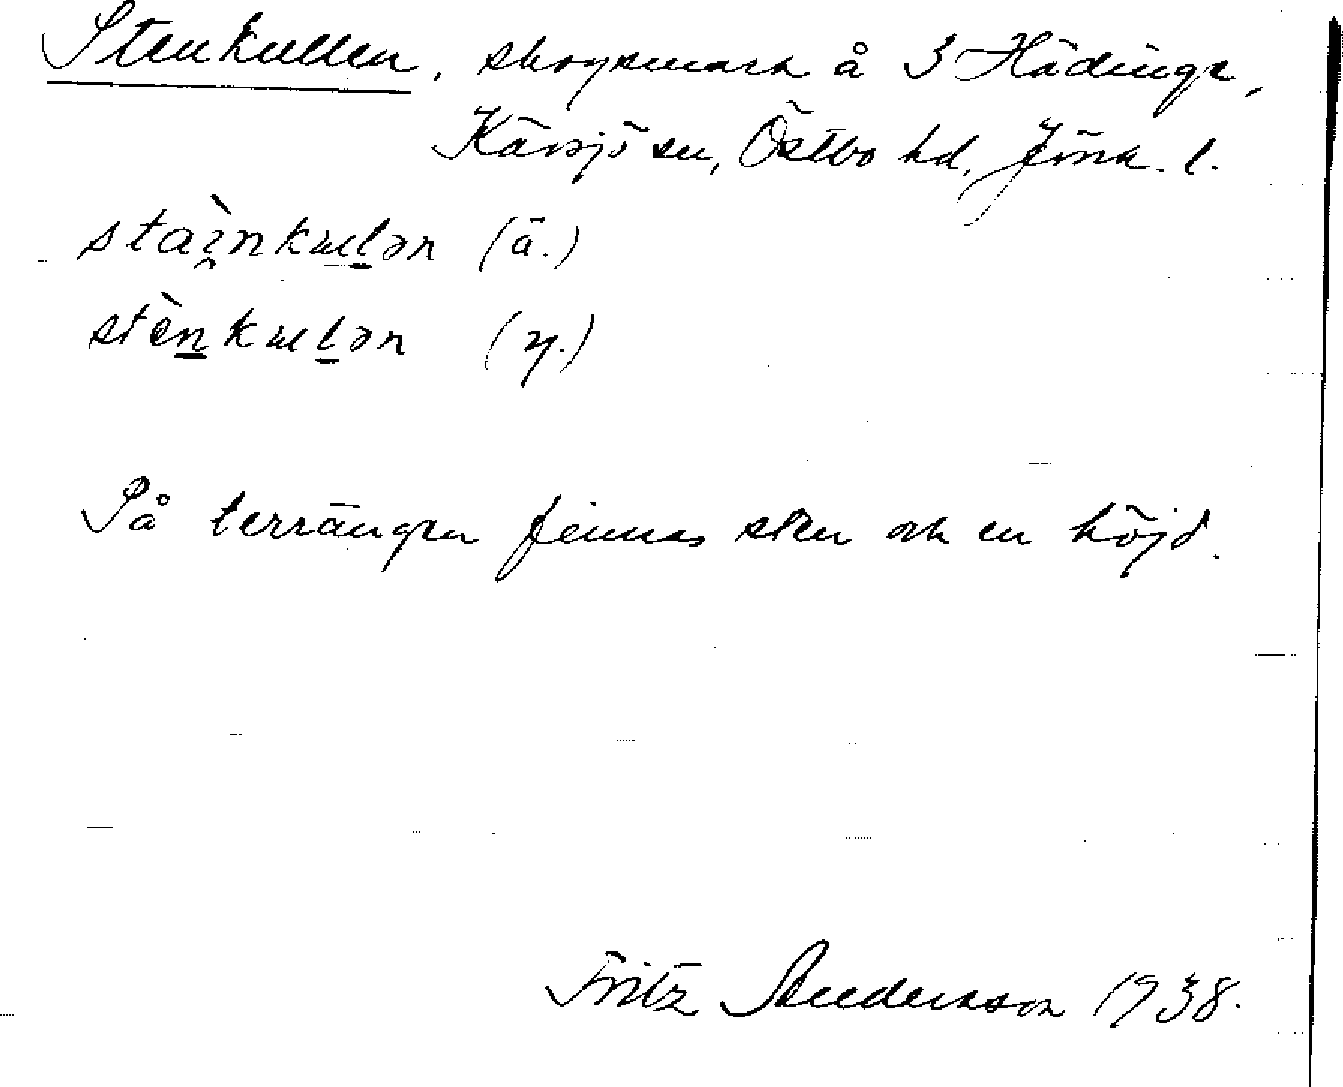 Stenkullen, skogsmark å S Hädinge,
Kävsjö sn, Östbo hd, Jönk. l.
staì̯nkul̲ən (ä.)
stèn̲kul̲ən (y.)
På terrängen finnas sten och en höjd.
Fritz Andersson 1938.